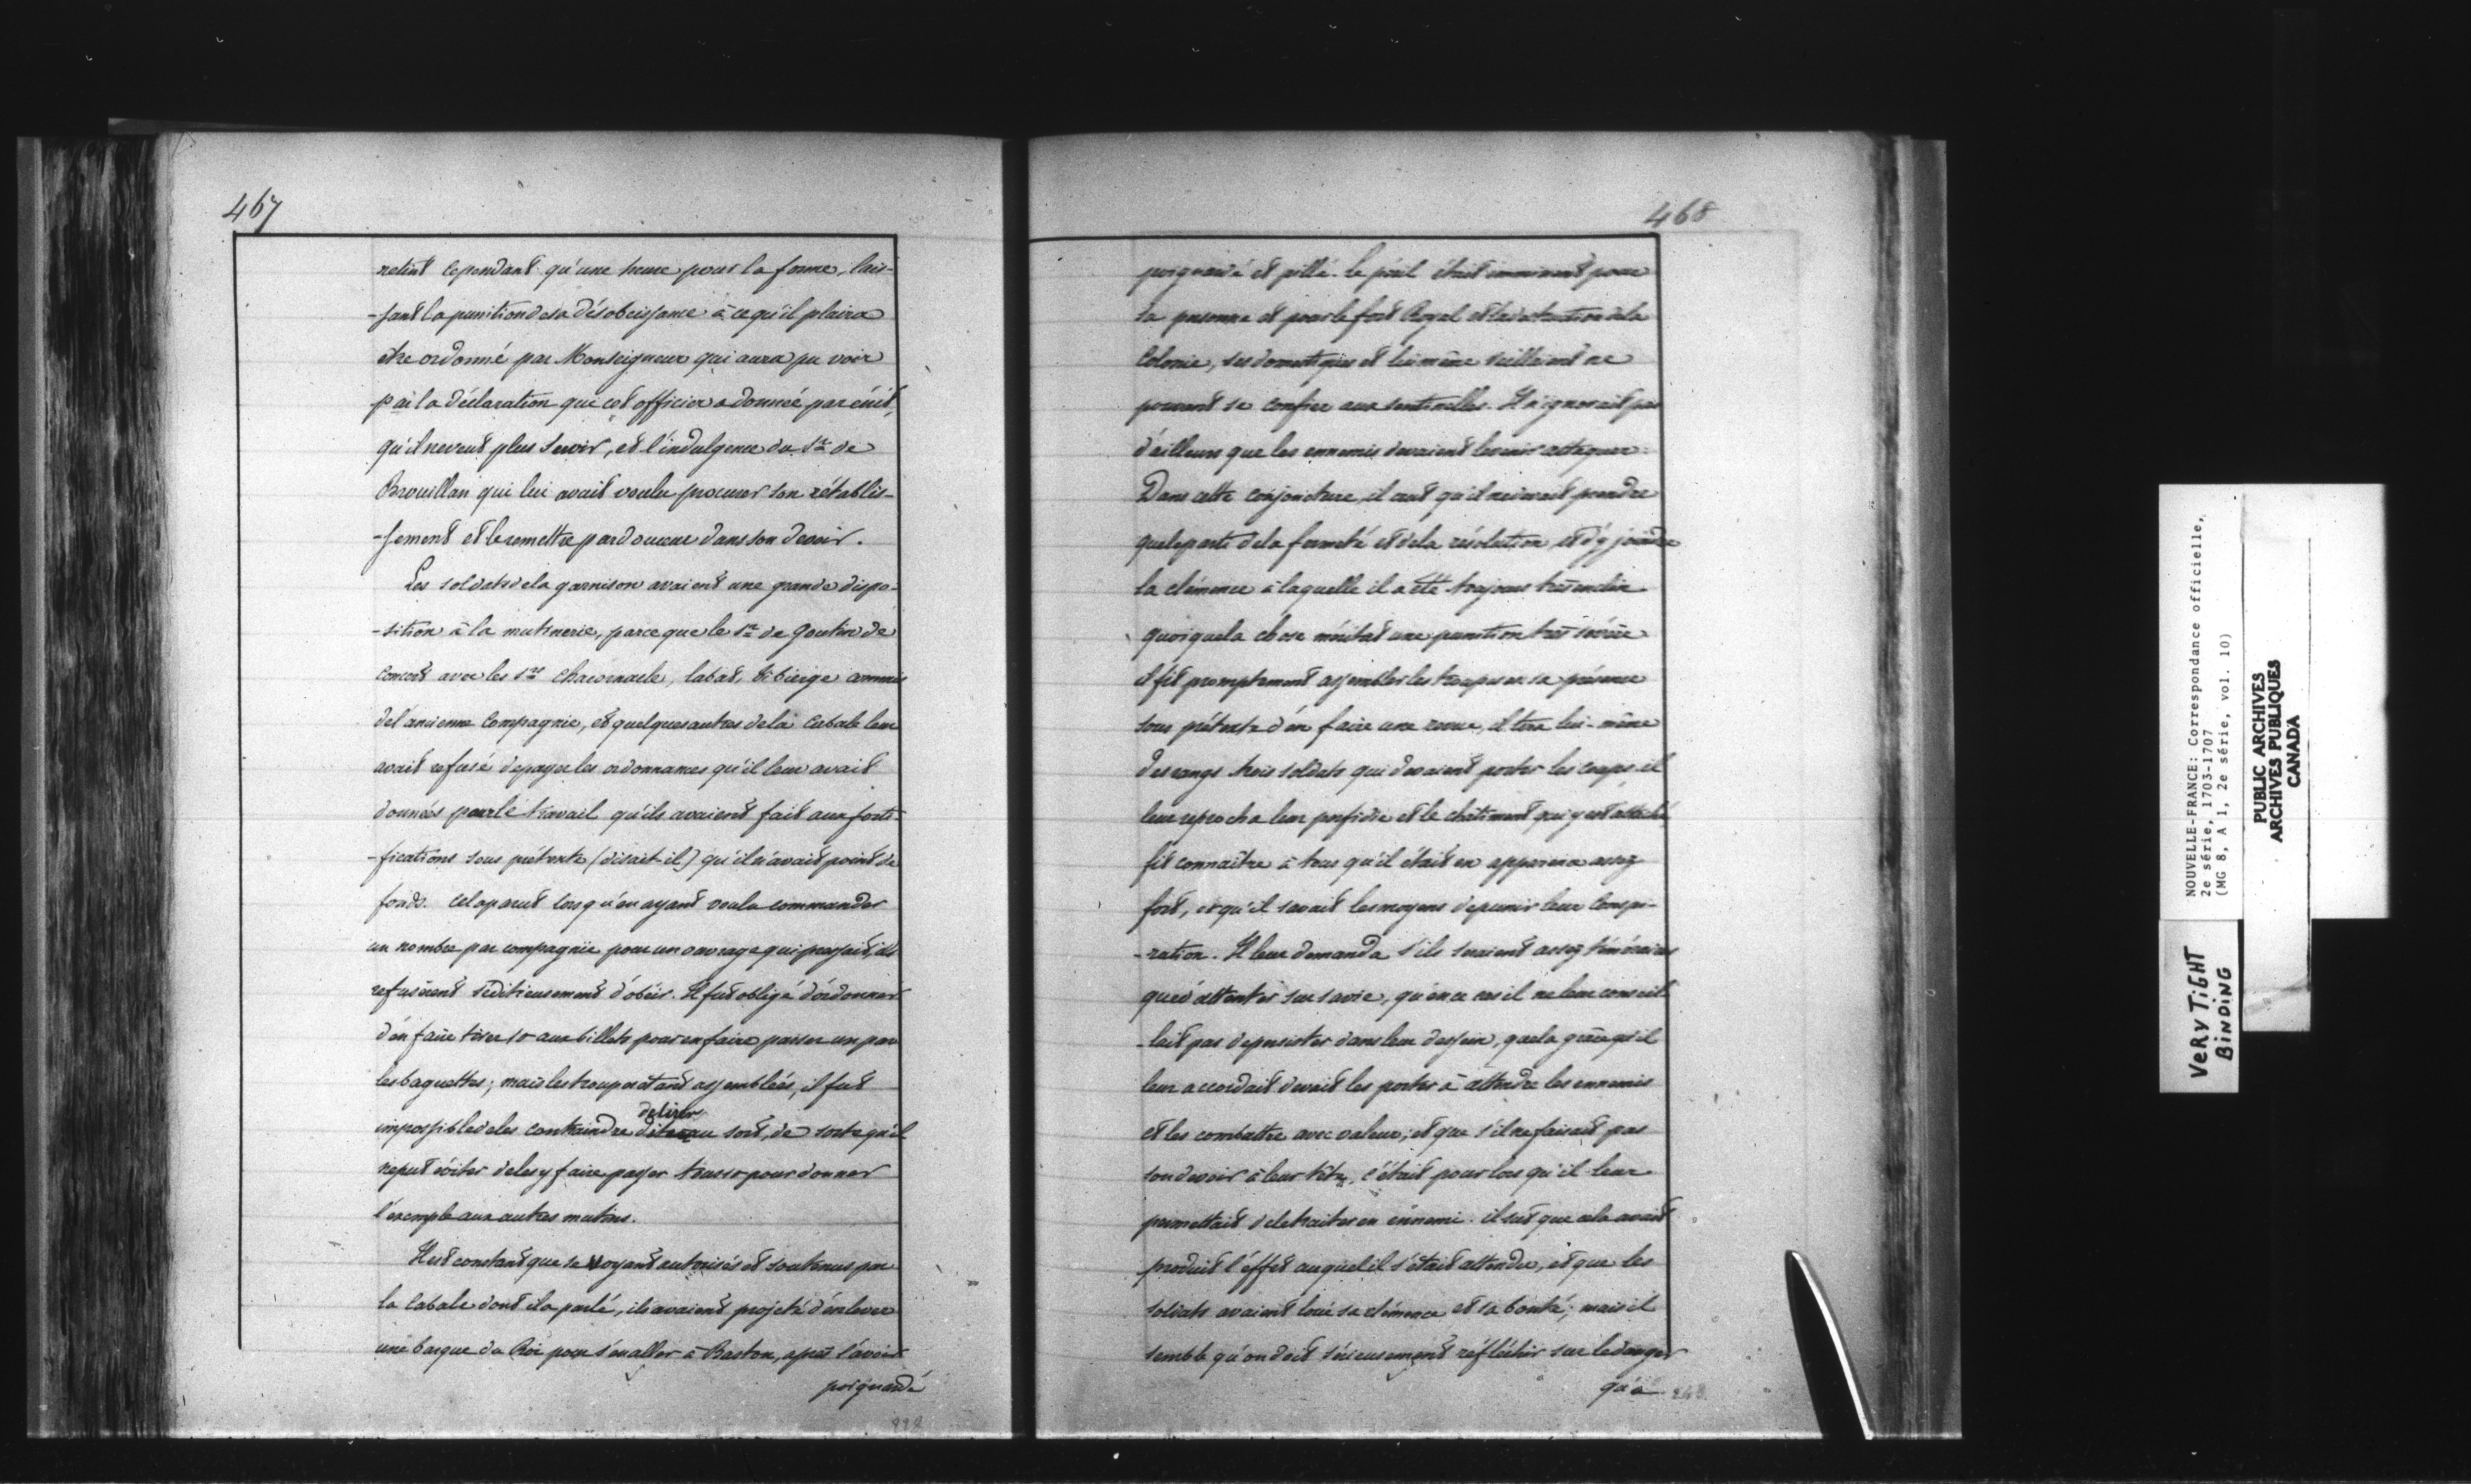 467
retint cependant qu'une heure pour la forme, lais-
-sant la punition de sa désobéissance à ce qu'il plaira
être ordonné par Monseigneur qui aura pu voir
par la déclaration que cet officier a donnée par écrit,
qu'il ne veut plus servir, et l'indulgence du Sr. de
Brouillan qui lui avait voulu procurer son rétablis-
-sement et le remettre par douceur dans son devoir.
Les soldats de la garnison avaient une grande dispo-
-sition à la mutinerie, parceque le Sr. de Goutin de
concert avec les Srs. Chacornacle, labat, Vibierge commis
de l'ancienne Compagnie, et quelques autres de la Cabale leur
avait refusé de payer les ordonnances qu'il leur avait
données pour le travail qu'ils avaient fait aux forti-
-fications sous prétexte (disait-il) qu'il n'avait point de
fonds. Cela parut lorsqu'en ayant voulu commander
un nombre par compagnie pour un ouvrage qui pressait, ils
refusèrent séditieusement d'obéir. Il fut obligé d'ordonner
d'en faire tirer 10 aux billets pour en faire passer un par
les baguettes; mais les troupes étant assemblées, il fut
impossible de les contraindre de tirer au sort, de sorte qu'il
ne put éviter de les y faire passer tous 10 pour donner
l'exemple aux autres mutins.
Il est constant que se voyant autorisés et soutenus par
la Cabale dont il a parlé, ils avaient projeté d'enlever
une barque du Roi pour s'en aller à Baston, après l'avoir
poignardé
468
poignardé et pillé. le péril était imminent pour
sa personne et pour le fort Royal et la destruction de la
Colonie, ses domestiques et lui même veillaient ne
pouvant se confier aux sentinelles. Il n'ignorait pas
d'ailleurs que les ennemis devaient le venir attaquer.
Dans cette conjoncture, il crut qu'il ne devait prendre
que le parti de la fermeté et de la résolution et d'y joindre
la clémence à laquelle il a été toujours très enclin
quoique la chose méritat une punition très sévère
il fit promptement assembler les troupes en sa présence
sous prétexte d'en faire une revue, il tira lui-même
des rangs trois soldats qui devaient porter les coups, il
leur reprocha leur perfidie et le châtiment qui y est attaché
fit connaître à tous qu'il était en apparence assez
fort, et qu'il savait les moyens de punir leur Conspi-
-ration. Il leur demanda s'ils seraient assez téméraires
que d'attenter sur sa vie, qu'en ce cas il ne leur conseil-
-lait pas de persister dans leur dessein, que la grâce qu'il
leur accordait devait les porter à attendre les ennemis
et les combattre avec valeur; et que s'il ne faisait pas
son devoir à leur tête, c'était pour lors qu'il leur
permettait de le traiter en ennemi. il sut que cela avait
produit l'effet auquel il s'était attendu, et que les
soldats avaient loué sa clémence et sa bonté; mais il
semble qu'on doit sérieusement réfléchir sur le danger
qu'a
NOUVELLE-FRANCE: Correspondance officielle,
2e série, 1703-1707
(MG 8, A 1, 2e série, vol. 10)
PUBLIC ARCHIVES
ARCHIVES PUBLIQUES
CANADA
VERY TIGHT
BINDING